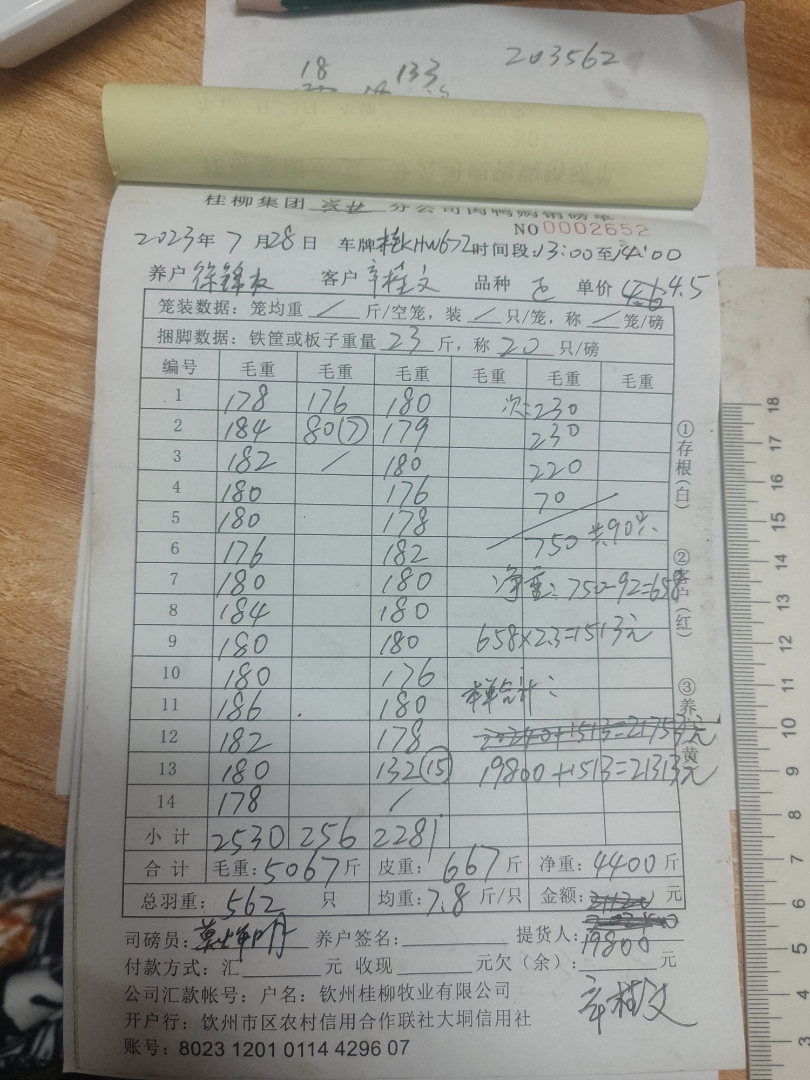 203562
18 133
桂柳集团 分公司肉鸭购销磅单
NO 0002652
2023年7月28日 车牌 桂KHW672 时间段:13:00至14:00
养户 客户 辛桂文 品种 单价 4.5
笼装数据：笼均重 / 斤/空笼，装 / 只/笼，称 / 笼/磅
捆脚数据：铁筐或板子重量 23 斤，称 20 只/磅
编号 毛重 毛重 毛重 毛重 毛重 毛重
1 178 176 180 次:230
2 184 80(7) 179 230
3 182 / 180 220
4 180 176 70
5 180 178
6 176 182 750 共90只
7 180 180 净重:750-92=658
8 184 180
9 180 180 658×2.3=1513元
10 180 176
11 186 180 合计:
12 182 178 20240+1513=21753元
13 180 132(15) 19800+1513=21313元
14 178 /
小计 2530 256 2281
合计 毛重:5067斤 皮重:667斤 净重:4400斤
总羽重:562 只 均重:7.8斤/只 金额: 元
19800
司磅员: 养户签名: 提货人:
付款方式：汇 元 收现 元欠（余）: 元
辛桂文
公司汇款帐号：户名：钦州桂柳牧业有限公司
开户行：钦州市区农村信用合作联社大垌信用社
账号：8023 1201 0114 4296 07
①存根(白)
②客户(红)
③养 黄
18
17
16
15
14
13
12
11
10
9
8
7
6
5
4
3